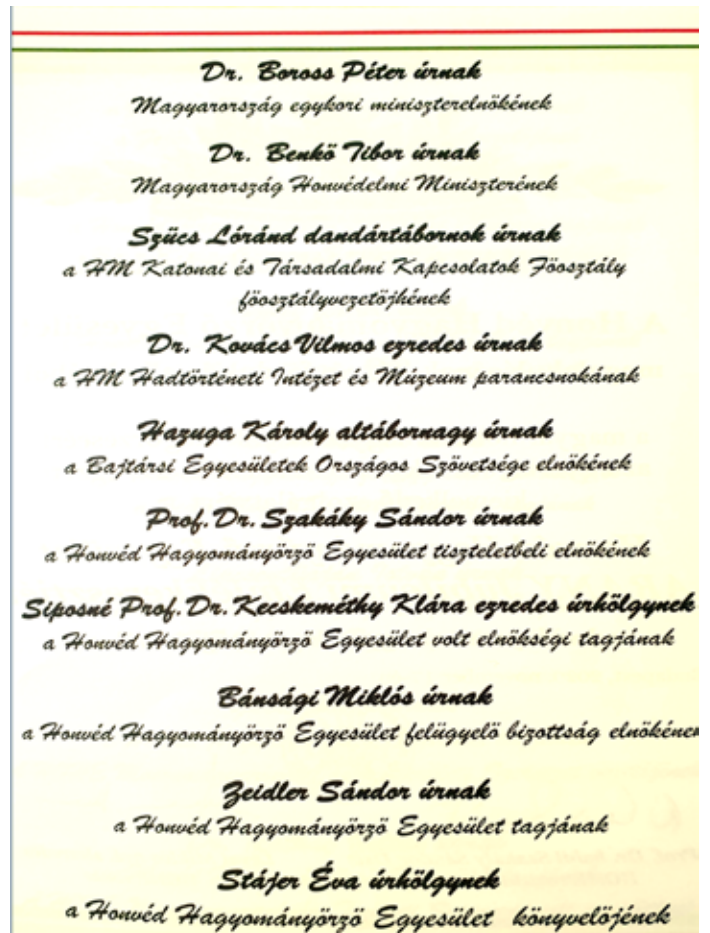 Dr. Boross Péter úrnak
Magyarország egykori miniszterelnökének
Dr. Benkö Tibor úrnak
Magyarország Honvédelmi Miniszterének
Szücs Lóránd dandártábornok úrnak
a HM Katonai és Társadalmi Kapcsolatok Föosztály
föosztályvezetöjhének
Dr. Kovács Vilmos ezredes úrnak
a HM Hadtörténeti Intézet és Múzeum parancsnokának
Hazuga Károly altábornagy úrnak
a Bajtársi Egyesületek Országos Szövetsége elnökének
Prof. Dr. Szakáky Sándor úrnak
a Honvéd Hagyományörzö Egyesület tiszteletbeli elnökének
Siposné Prof. Dr. Kecskeméthy Klára ezredes úrhölgynek
a Honvéd Hagyományörzö Egyesület volt elnökségi tagjának
Bánsági Miklós úrnak
a Honvéd Hagyományörzö Egyesület felügyelö bizottság elnökének
Zeidler Sándor úrnak
a Honvéd Hagyományörzö Egyesület tagjának
Stájer Éva úrhölgynek
a Honvéd Hagyományörzö Egyesület könyvelöjének